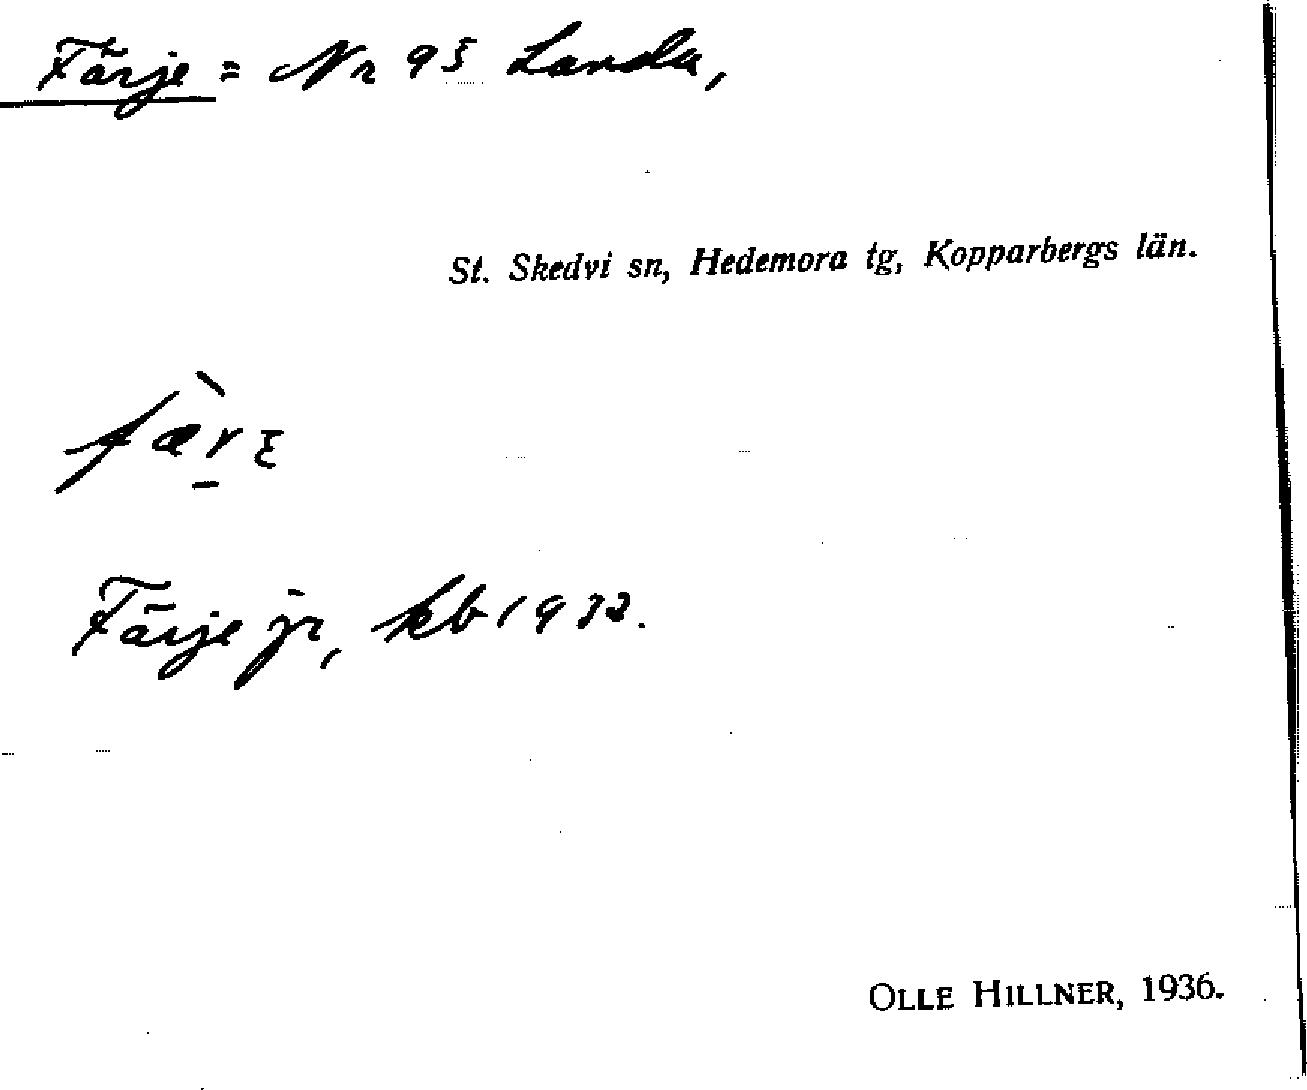 Färje = Nr 95 Landa,
St. Skedvi sn, Hedemora tg, Kopparbergs län.
fæ̀rɛ
Färje jr, kb 1932.
OLLE HILLNER, 1936.